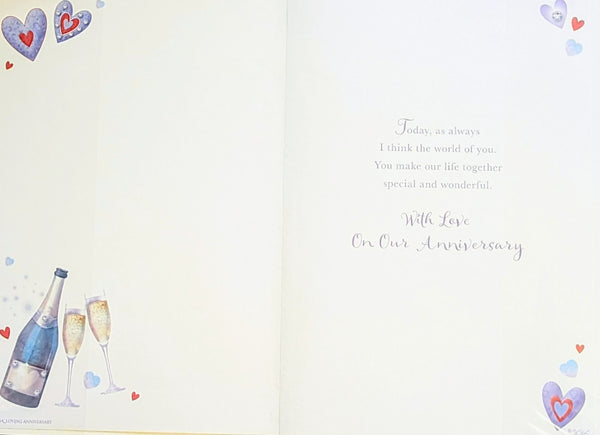 Today, as always
I think the world of you.
You make our life together
special and wonderful.
With Love
On Our Anniversary
LOVING ANNIVERSARY